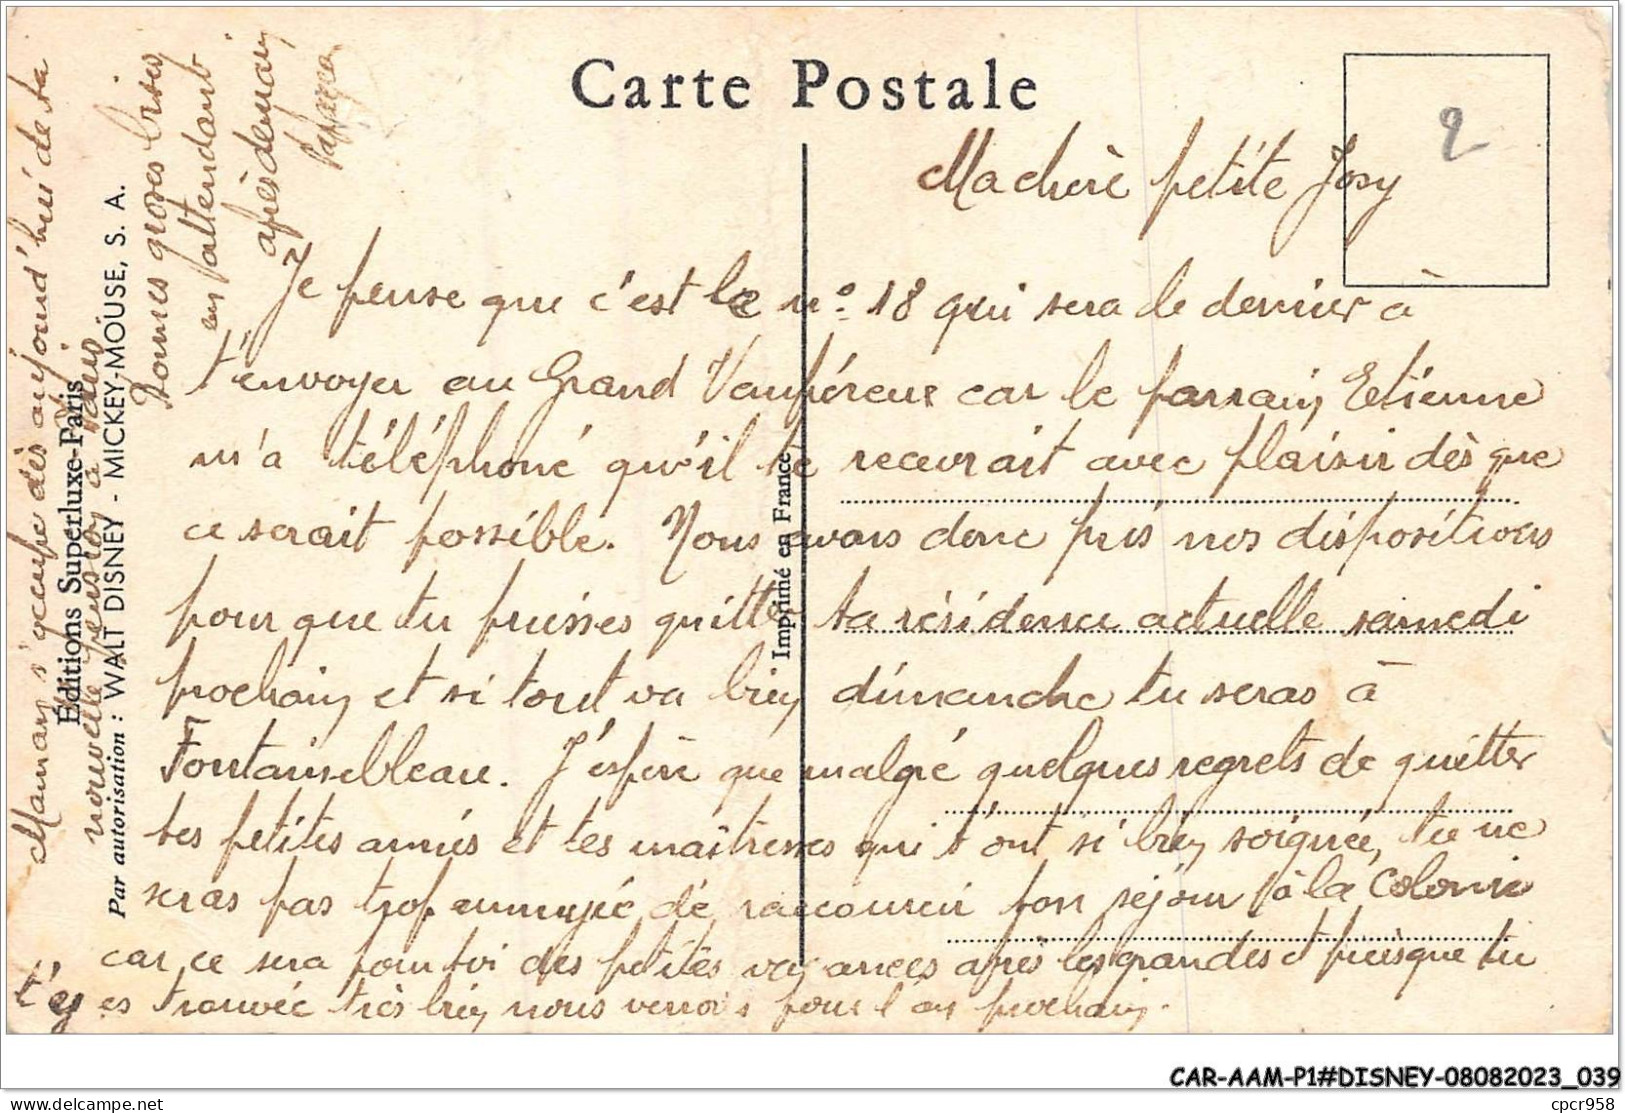 Carte Postale
2
Ma chère petite Josy
Je pense que c'est le n° 18 qui sera le dernier à
t'envoyer au Grand Vempéreux car le parrain Etienne
m'a téléphoné qu'il te recevrait avec plaisir dès que
ce serait possible. Nous avons donc pris nos dispositions
pour que tu puisses quitter ta résidence actuelle samedi
prochain et si tout va bien dimanche tu seras à
Fontainebleau. J'espère que malgré quelques regrets de quitter
tes petites amies et tes maîtresses qui t'ont si bien soignée, tu ne
seras pas trop ennuyée de raccourcir ton séjour à la Colonie
car ce sera pour toi des petites vacances après les grandes et puisque tu
t'es es trouvée très bien nous verrons pour l'an prochain.
Maman s'occupe dès aujourd'hui de ta
nouvelle pension à Paris
Bonnes grosses bises
en t'attendant
après demain
Papa
Éditions Superluxe-Paris
Par autorisation : WALT DISNEY - MICKEY-MOUSE, S. A.
Imprimé en France
CAR-AAM-P1#DISNEY-08082023_039
delcampe.net
cpcr958